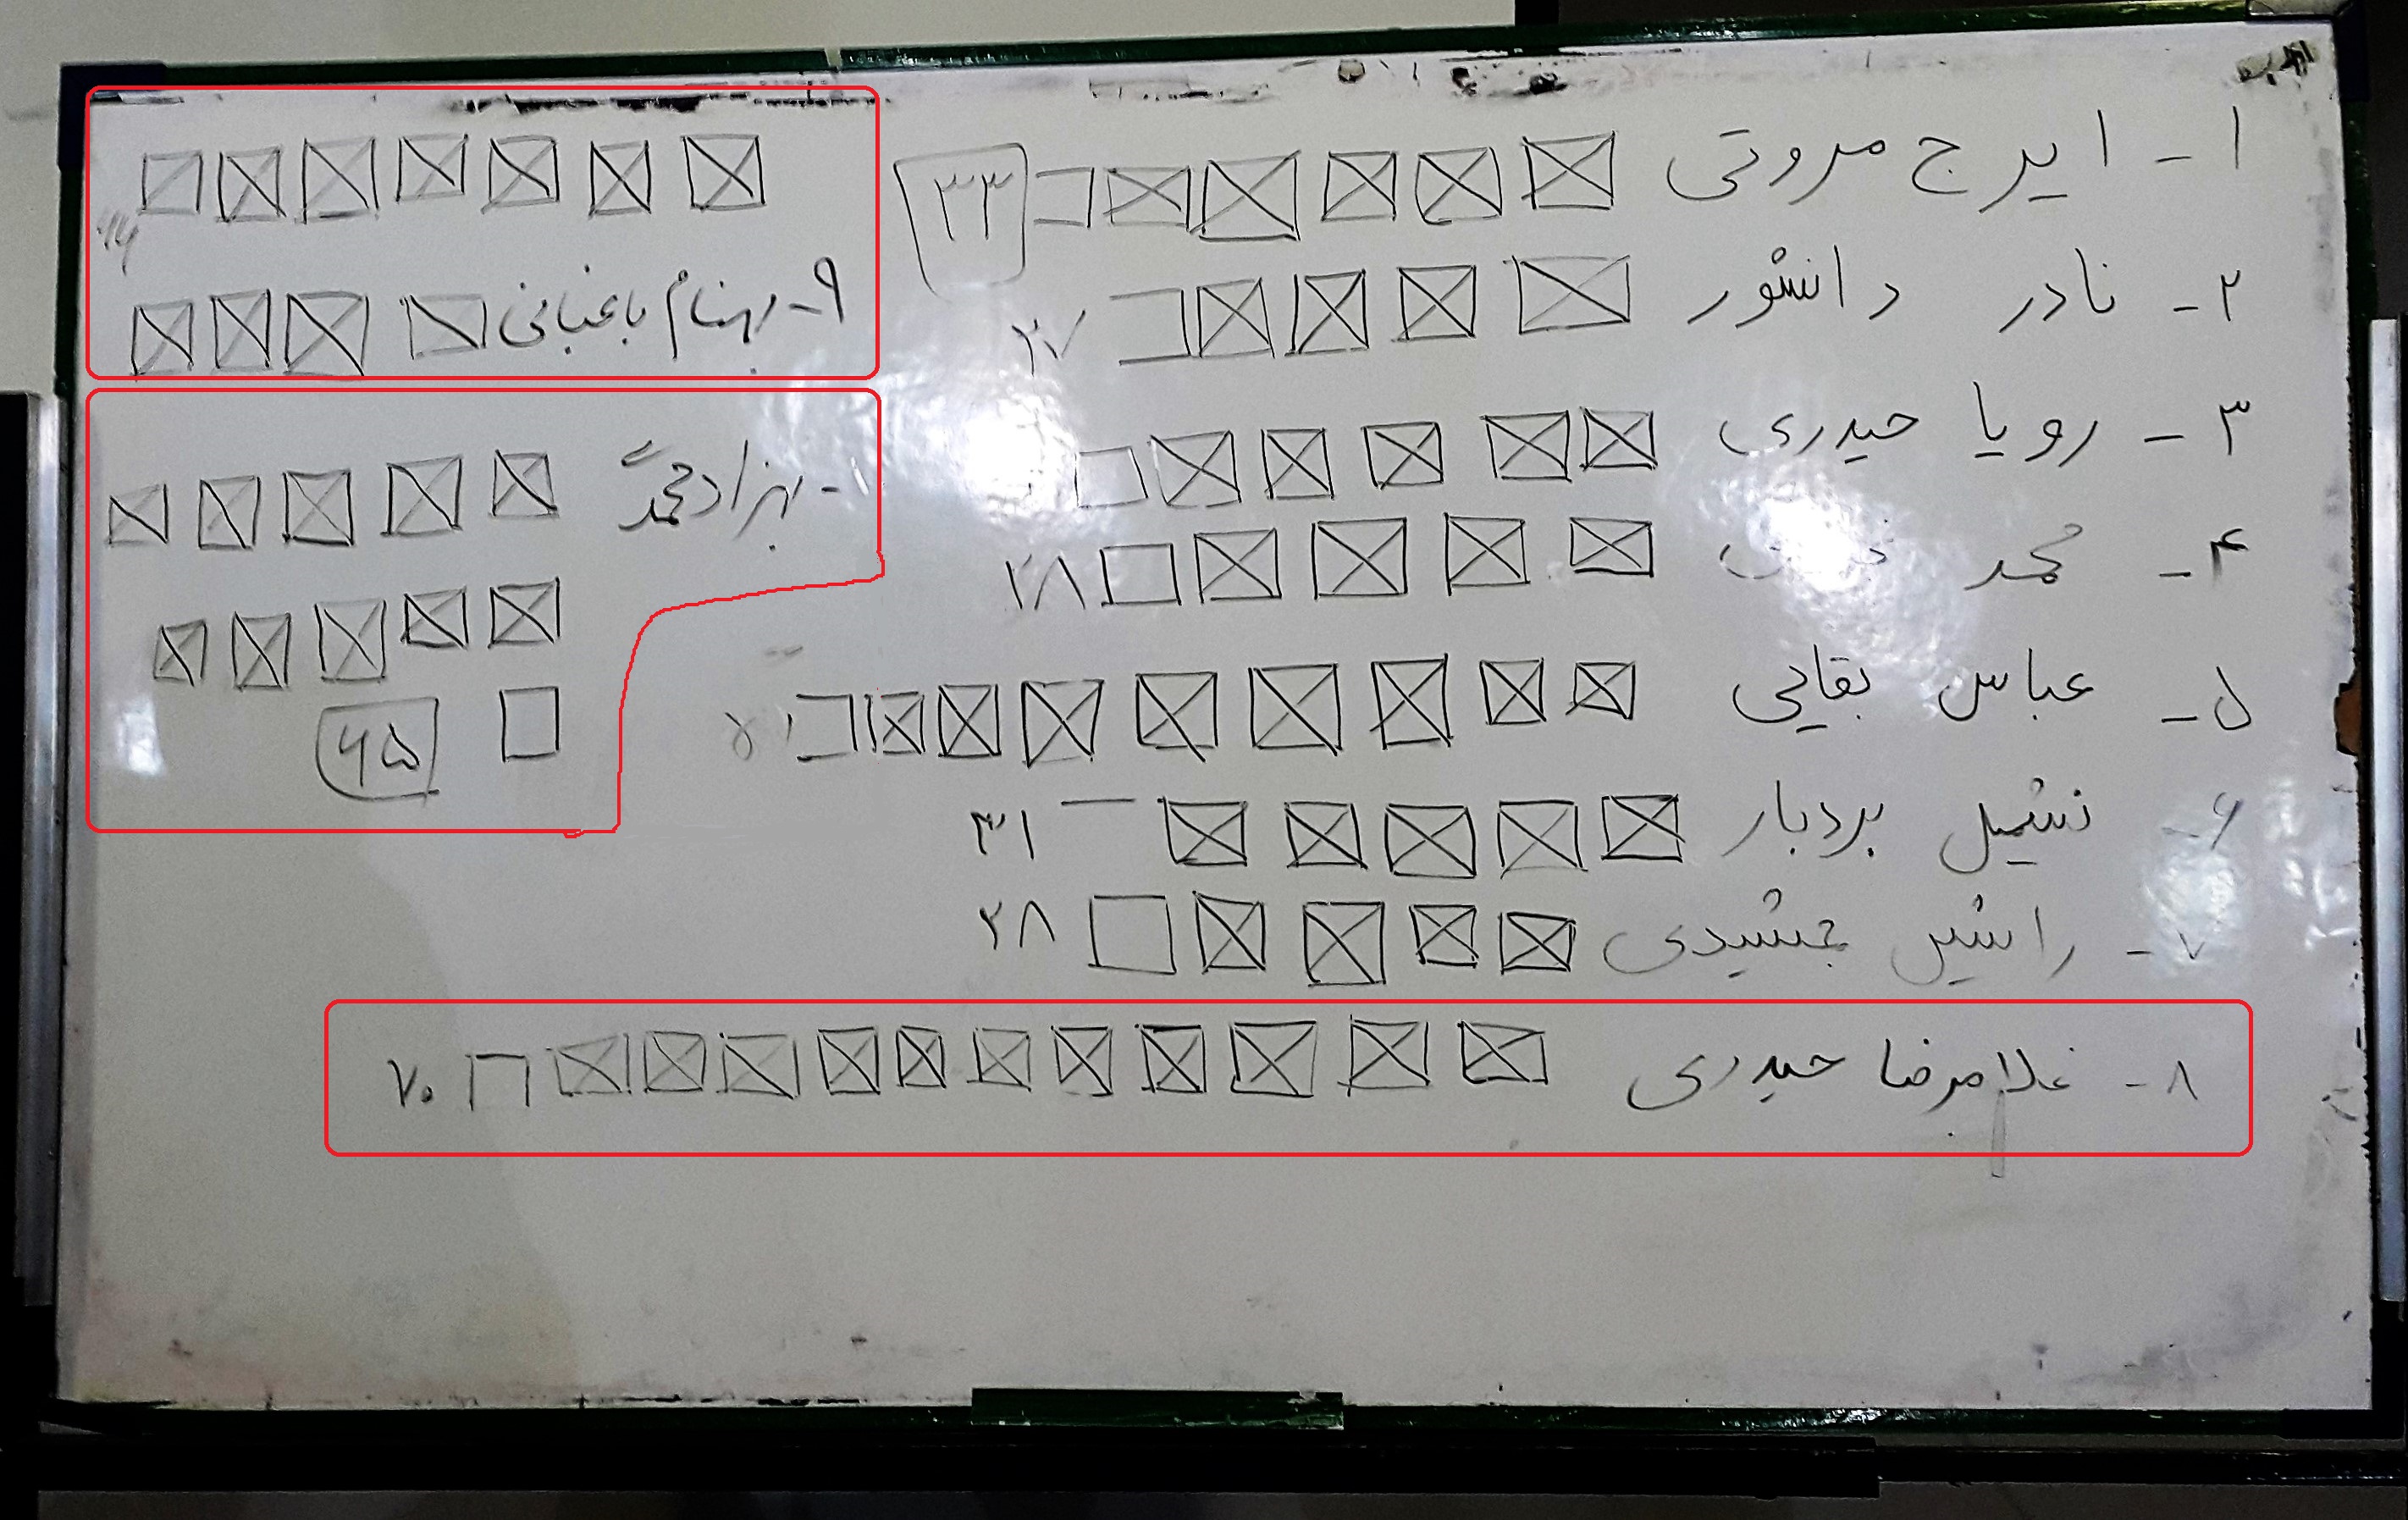 ۱- ایرج مروتی ۳۳
۲- نادر دانشور ۲۷
۳- رویا حیدری
۴- محمد ۲۸
۵- عباس بقایی
۶- نشمیل بردبار ۳۱
۷- راشین جمشیدی ۲۸
۸- غلامرضا حیدری ۷۰
۹- بهنام باغبانی
۱۰- بهزاد محمدی
۶۵